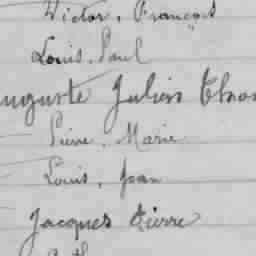 Victor, François
Louis, Paul
Auguste Julien
Pierre, Marie
Louis, Jean
Jacques Pierre